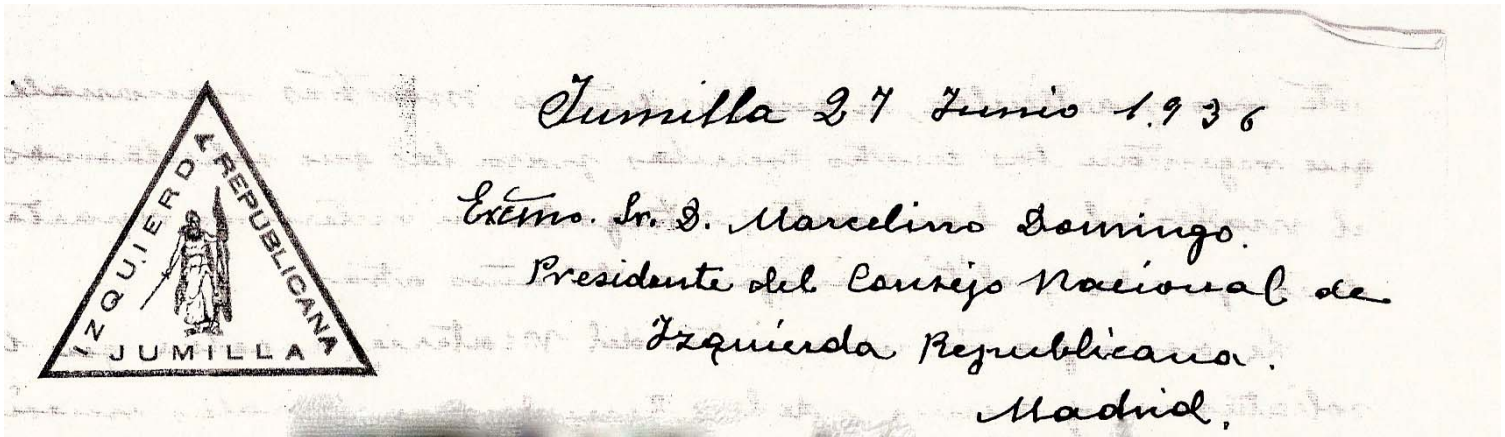 IZQUIERDA REPUBLICANA
JUMILLA
Jumilla 27 Junio 1.936
Excmo. Sr. D. Marcelino Domingo.
Presidente del Consejo Nacional de
Izquierda Republicana.
Madrid.